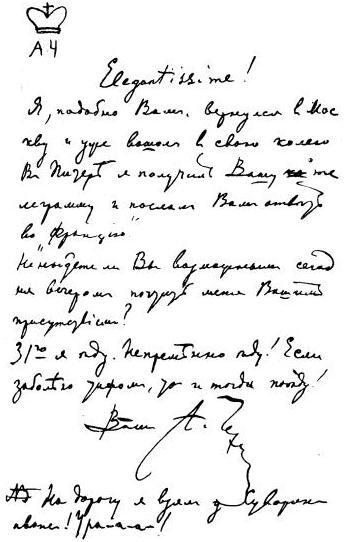 АЧ
Elegantissime!
Я, подобно Вам, вернулся в Мос
кву и уже вошел в свою колею
В Питере я получил Вашу те
леграмму и послал Вам ответ
во "Францию"
Не найдете ли Вы возможным сегод
ня вечером почтить меня Вашим
присутствием?
31го я еду. Непременно еду! Если
заболею тифом, то и тогда поеду!
Ваш А. Чехов
NB На дорогу я взял у Суворина
аванс! Ура-а-а-а!